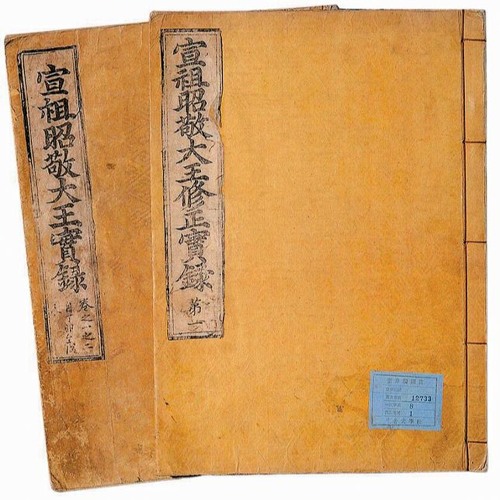 宣祖昭敬大王修正實錄
第一
宣祖昭敬大王實錄
卷之一之二
12733
8
1